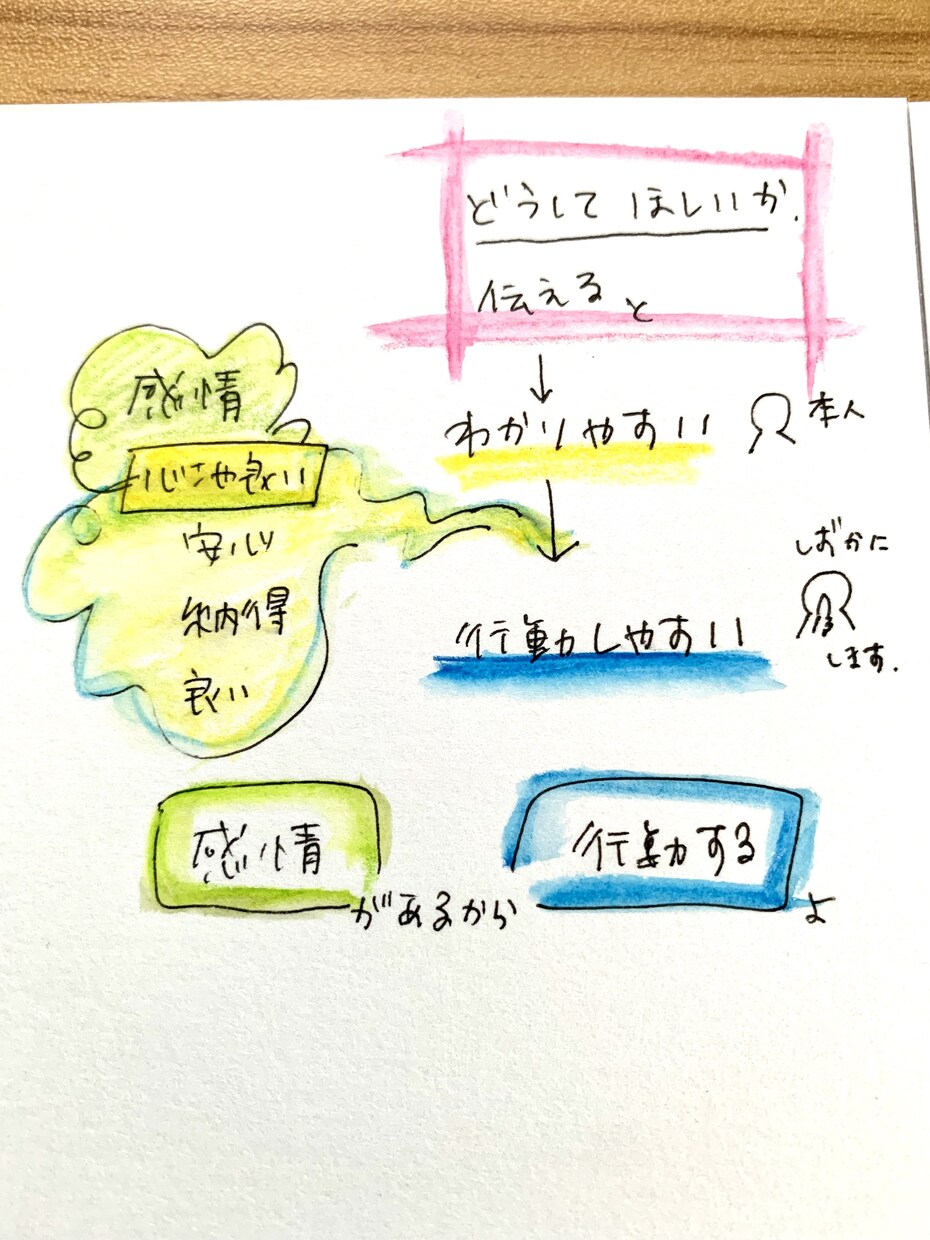 どうしてほしいか.
伝えると
わかりやすい
本人
行動しやすい
しずかに
します.
感情
良い
安心
納得
良い
感情があるから行動するよ